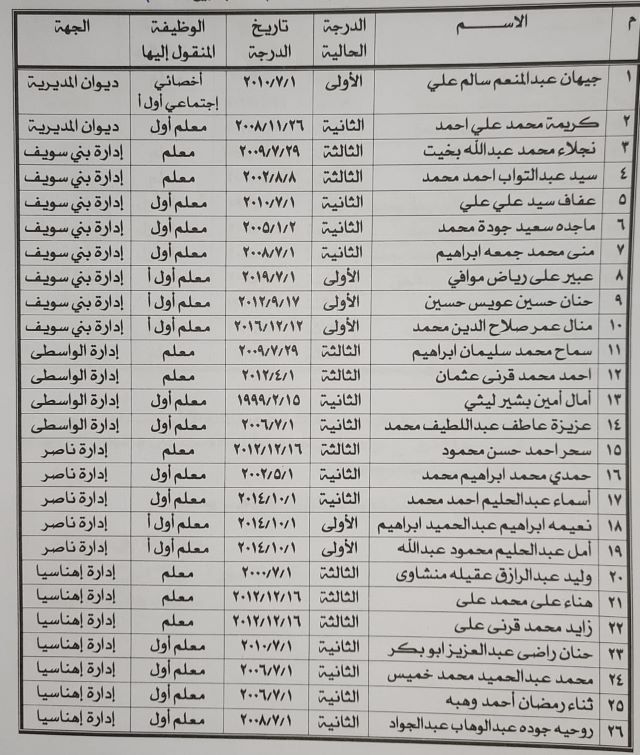 م الاســـــم الدرجة الحالية تاريخ الدرجة الوظيفة المنقول إليها الجهة
١ جيهان عبدالمنعم سالم علي الأولى ٢٠١٠/٧/١ أخصائي إجتماعي أول أ ديوان المديرية
٢ كريمة محمد علي احمد الثانية ٢٠٠٨/١١/٢٦ معلم أول ديوان المديرية
٣ نجلاء محمد عبدالله بخيت الثالثة ٢٠٠٩/٧/٢٩ معلم إدارة بني سويف
٤ سيد عبدالتواب احمد محمد الثالثة ٢٠٠٢/٨/٨ معلم إدارة بني سويف
٥ عفاف سيد علي علي الثانية ٢٠١٠/٧/١ معلم أول إدارة بني سويف
٦ ماجده سعيد جودة محمد الثانية ٢٠٠٥/١/٢ معلم أول إدارة بني سويف
٧ منى محمد جمعه ابراهيم الثانية ٢٠٠٨/٧/١ معلم أول إدارة بني سويف
٨ عبير على رياض موافي الأولى ٢٠١٩/٧/١ معلم أول أ إدارة بني سويف
٩ حنان حسين عويس حسين الأولى ٢٠١٢/٩/١٧ معلم أول أ إدارة بني سويف
١٠ منال عمر صلاح الدين محمد الأولى ٢٠١٦/١٢/١٢ معلم أول أ إدارة بني سويف
١١ سماح محمد سليمان ابراهيم الثالثة ٢٠٠٩/٧/٢٩ معلم إدارة الواسطى
١٢ احمد محمد قرنى عثمان الثالثة ٢٠١٢/٤/١ معلم إدارة الواسطى
١٣ أمال أمين بشير ليثي الثانية ١٩٩٩/٢/١٥ معلم أول إدارة الواسطى
١٤ عزيزة عاطف عبداللطيف محمد الثانية ٢٠٠٦/٧/١ معلم أول إدارة الواسطى
١٥ سحر احمد حسن محمود الثالثة ٢٠١٢/١٢/١٦ معلم إدارة ناصر
١٦ حمدي محمد ابراهيم محمد الثانية ٢٠٠٢/٥/١ معلم أول إدارة ناصر
١٧ أسماء عبدالحليم احمد محمد الثانية ٢٠١٤/١٠/١ معلم أول إدارة ناصر
١٨ نعيمه ابراهيم عبدالحميد ابراهيم الأولى ٢٠١٤/١٠/١ معلم أول أ إدارة ناصر
١٩ أمل عبدالحليم محمود عبدالله الأولى ٢٠١٤/١٠/١ معلم أول أ إدارة ناصر
٢٠ وليد عبدالرازق عقيله منشاوى الثالثة ٢٠٠٠/٧/١ معلم إدارة إهناسيا
٢١ هناء على محمد على الثالثة ٢٠١٢/١٢/١٦ معلم إدارة إهناسيا
٢٢ زايد محمد قرنى على الثالثة ٢٠١٢/١٢/١٦ معلم إدارة إهناسيا
٢٣ حنان راضى عبدالعزيز ابو بكر الثانية ٢٠١٠/٧/١ معلم أول إدارة إهناسيا
٢٤ محمد عبدالحميد محمد خميس الثانية ٢٠٠٦/٧/١ معلم أول إدارة إهناسيا
٢٥ ثناء رمضان أحمد وهبه الثانية ٢٠٠٦/٧/١ معلم أول إدارة إهناسيا
٢٦ روحيه جوده عبدالوهاب عبدالجواد الثانية ٢٠٠٨/٧/١ معلم أول إدارة إهناسيا